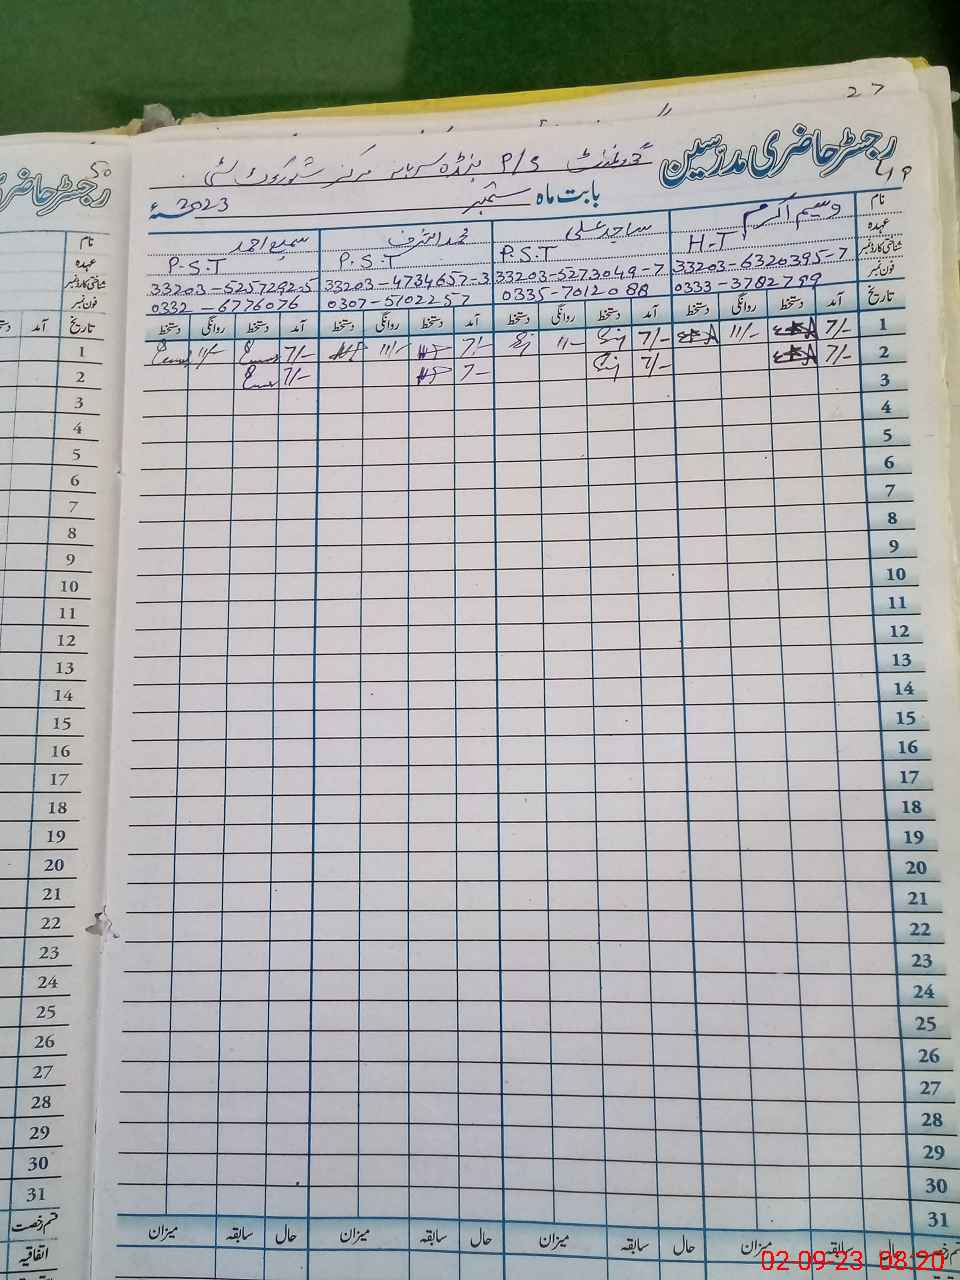 27
رجسٹر حاضری مدرسین
گورنمنٹ P/S مرکز
بابت ماہ ستمبر 2023ء
نام وسیم اکرم ساجد علی محمد اشرف سمیع احمد
عہدہ H-T P.S.T P.S.T P.S.T
شناختی کارڈ نمبر 33203-6320395-7 33203-5273049-7 33203-4734657-3 33203-5257292-5
فون نمبر 0333-3782799 0335-7012088 0307-5102257 0332-6776076
تاریخ آمد دستخط روانگی دستخط آمد دستخط روانگی دستخط آمد دستخط روانگی دستخط آمد دستخط روانگی دستخط
1 7/- 11/- 7/- 11- 7/- 11/- 7/- 11/-
2 7/- 7/- 7- 7/-
3
4
5
6
7
8
9
10
11
12
13
14
15
16
17
18
19
20
21
22
23
24
25
26
27
28
29
30
31
حال سابقہ میزان حال سابقہ میزان حال سابقہ میزان حال سابقہ میزان
50
رجسٹر حاضری
نام
عہدہ
شناختی کارڈ نمبر
فون نمبر
تاریخ آمد
1
2
3
4
5
6
7
8
9
10
11
12
13
14
15
16
17
18
19
20
21
22
23
24
25
26
27
28
29
30
31
قسم رخصت
اتفاقیہ
02-09-23 08:20